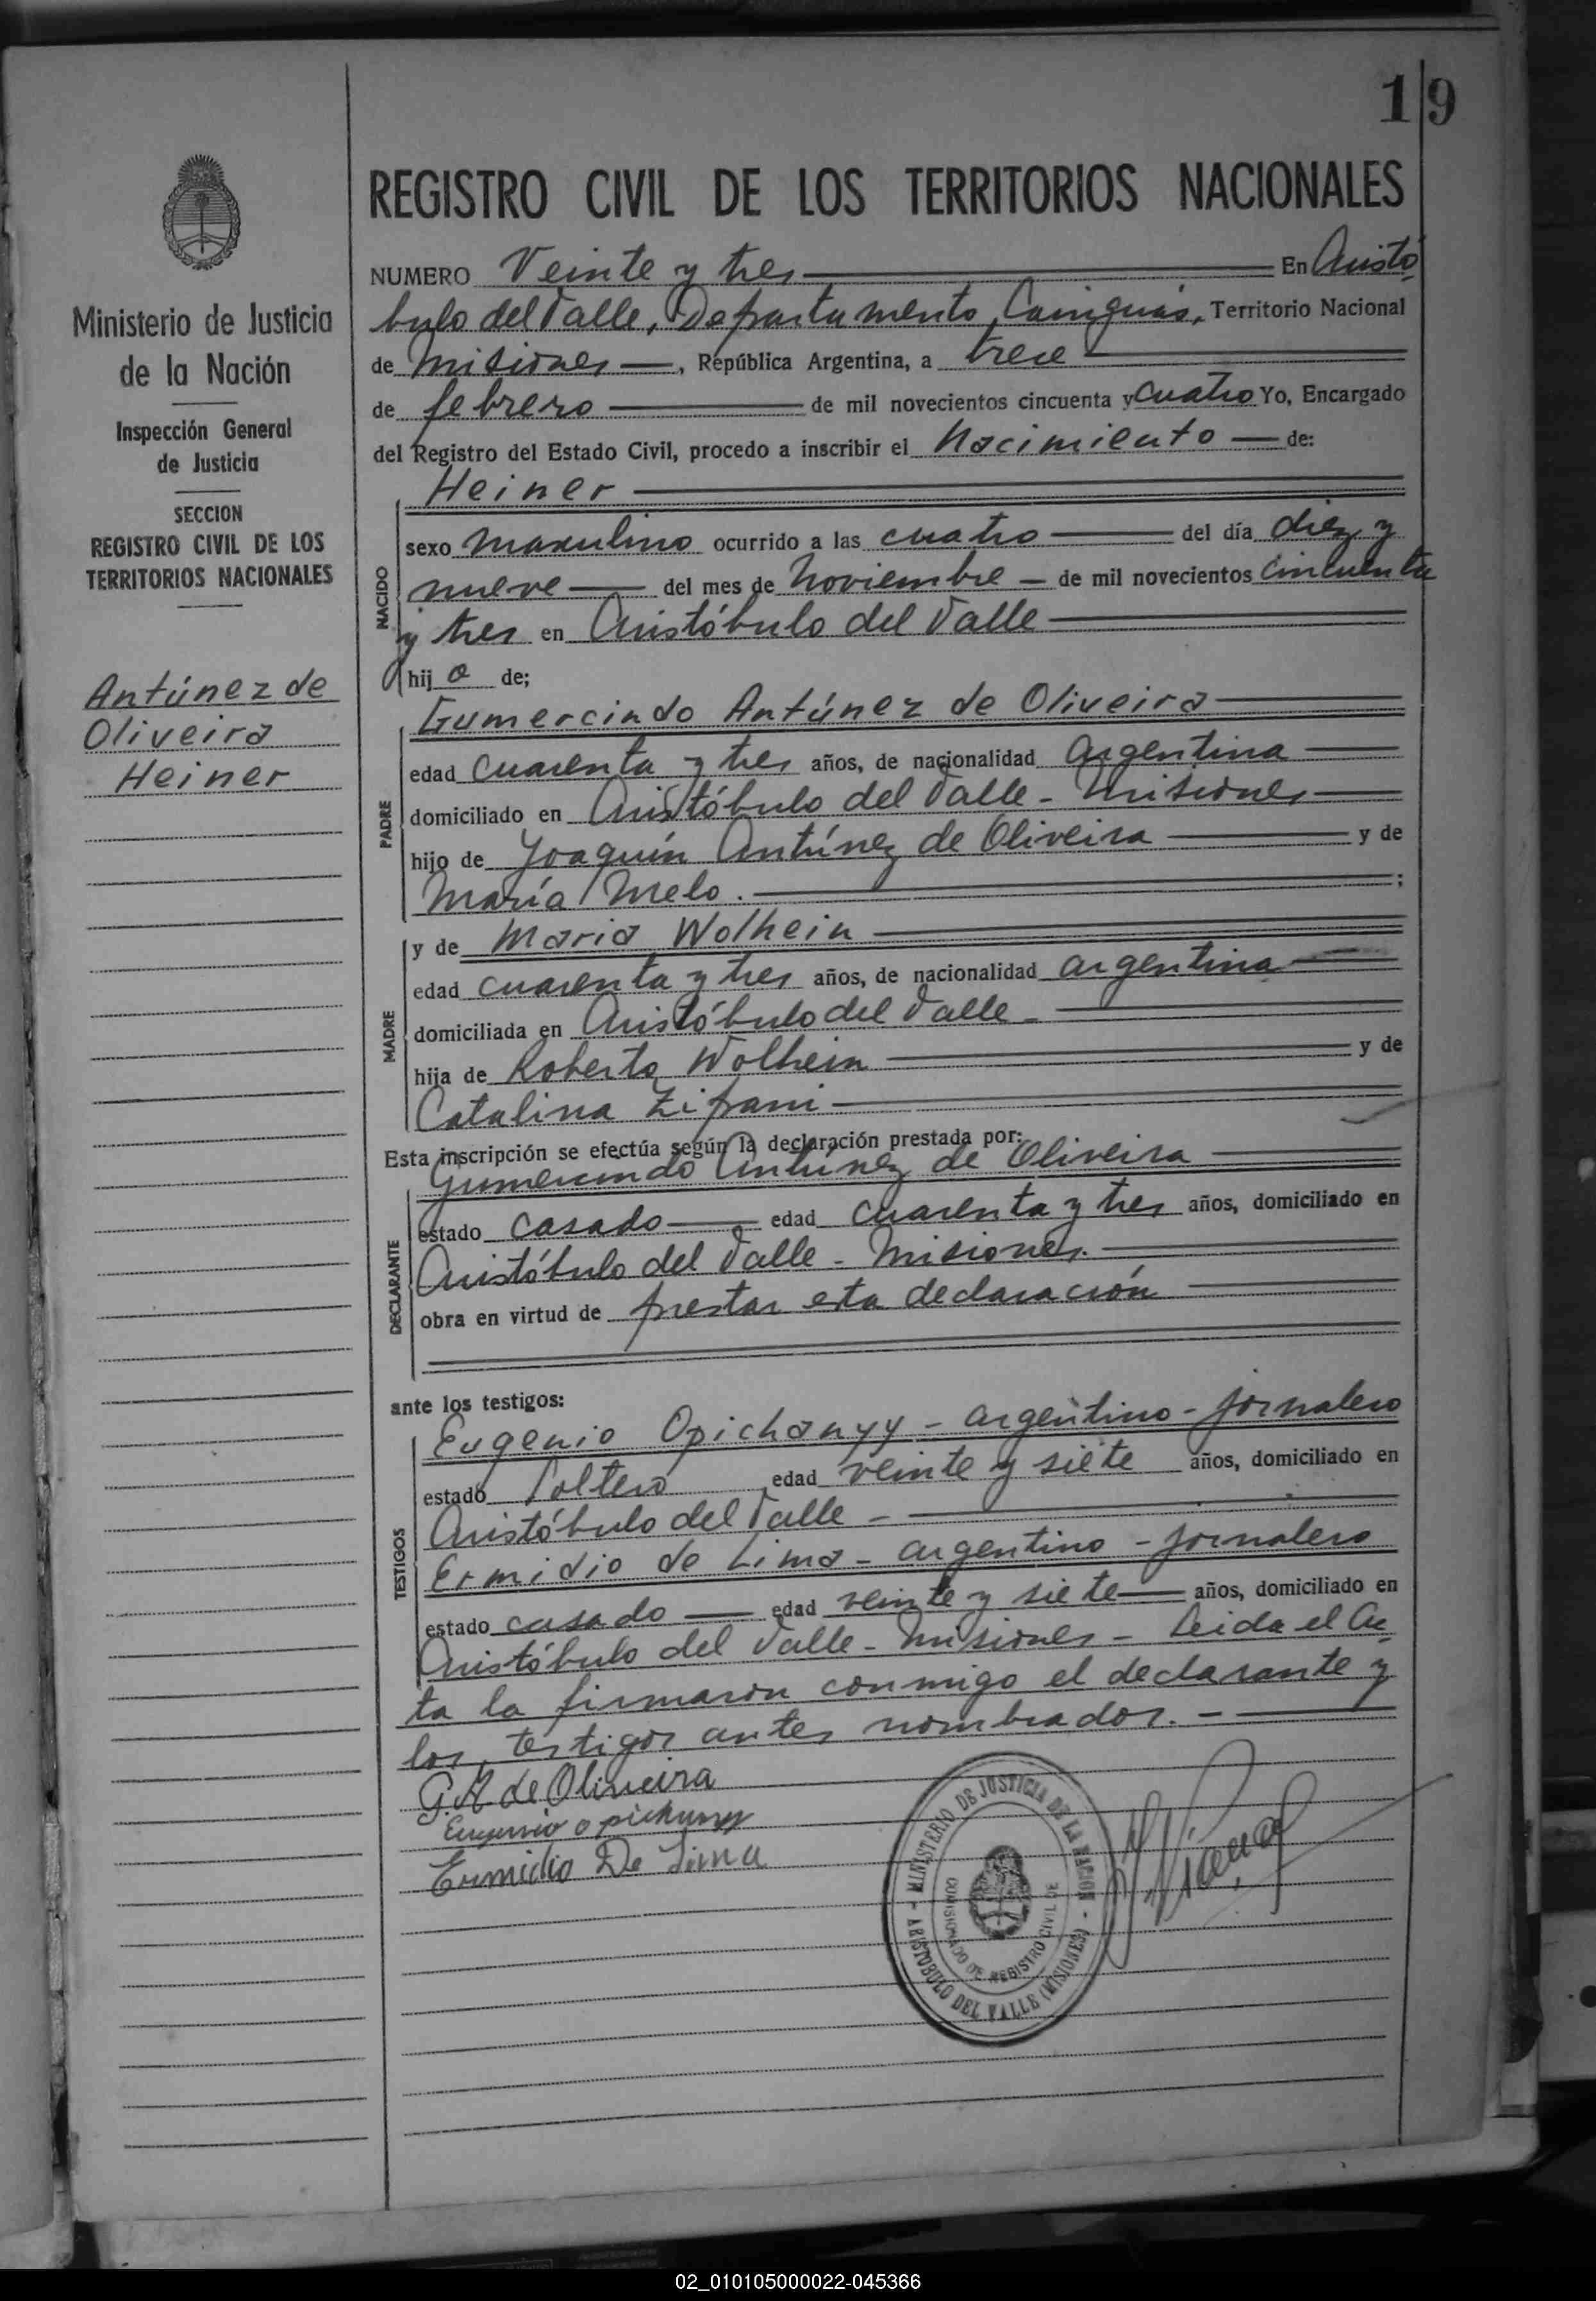 19
REGISTRO CIVIL DE LOS TERRITORIOS NACIONALES
Ministerio de Justicia
de la Nación
Inspección General
de Justicia
SECCION
REGISTRO CIVIL DE LOS
TERRITORIOS NACIONALES
Antúnez de
Oliveira
Heiner
NUMERO Veinte y tres En Aristó
bulo del Valle, Departamento Cainguás, Territorio Nacional
de Misiones, República Argentina, a trece
de febrero de mil novecientos cincuenta y cuatro Yo, Encargado
del Registro del Estado Civil, procedo a inscribir el Nacimiento de:
Heiner
NACIDO
sexo masculino ocurrido a las cuatro del día diez y
nueve del mes de Noviembre de mil novecientos cincuenta
y tres en Aristóbulo del Valle
hijo de;
PADRE
Gumercindo Antúnez de Oliveira
edad cuarenta y tres años, de nacionalidad argentina
domiciliado en Aristóbulo del Valle - Misiones
hijo de Joaquín Antúnez de Oliveira y de
María Melo. ;
MADRE
y de Maria Wolhein
edad cuarenta y tres años, de nacionalidad argentina
domiciliada en Aristóbulo del Valle -
hija de Roberto Wolhein y de
Catalina Zipani
Esta inscripción se efectúa según la declaración prestada por:
DECLARANTE
Gumercindo Antúnez de Oliveira
estado casado edad cuarenta y tres años, domiciliado en
Aristóbulo del Valle - Misiones.
obra en virtud de prestar esta declaración
ante los testigos:
TESTIGOS
Eugenio Opichanyy - argentino - jornalero
estado soltero edad veinte y siete años, domiciliado en
Aristóbulo del Valle -
Ermidio de Lima - argentino - jornalero
estado casado edad veinte y siete años, domiciliado en
Aristóbulo del Valle - Misiones - Leida el Ac
ta la firmaron conmigo el declarante y
los testigos antes nombrados. -
G. A. de Oliveira
Eugenio opichanyy
Ermidio De Lima
MINISTERIO DE JUSTICIA DE LA NACION - ARISTOBULO DEL VALLE (MISIONES) -
COMISIONADO DE REGISTRO CIVIL DE
02_010105000022-045366